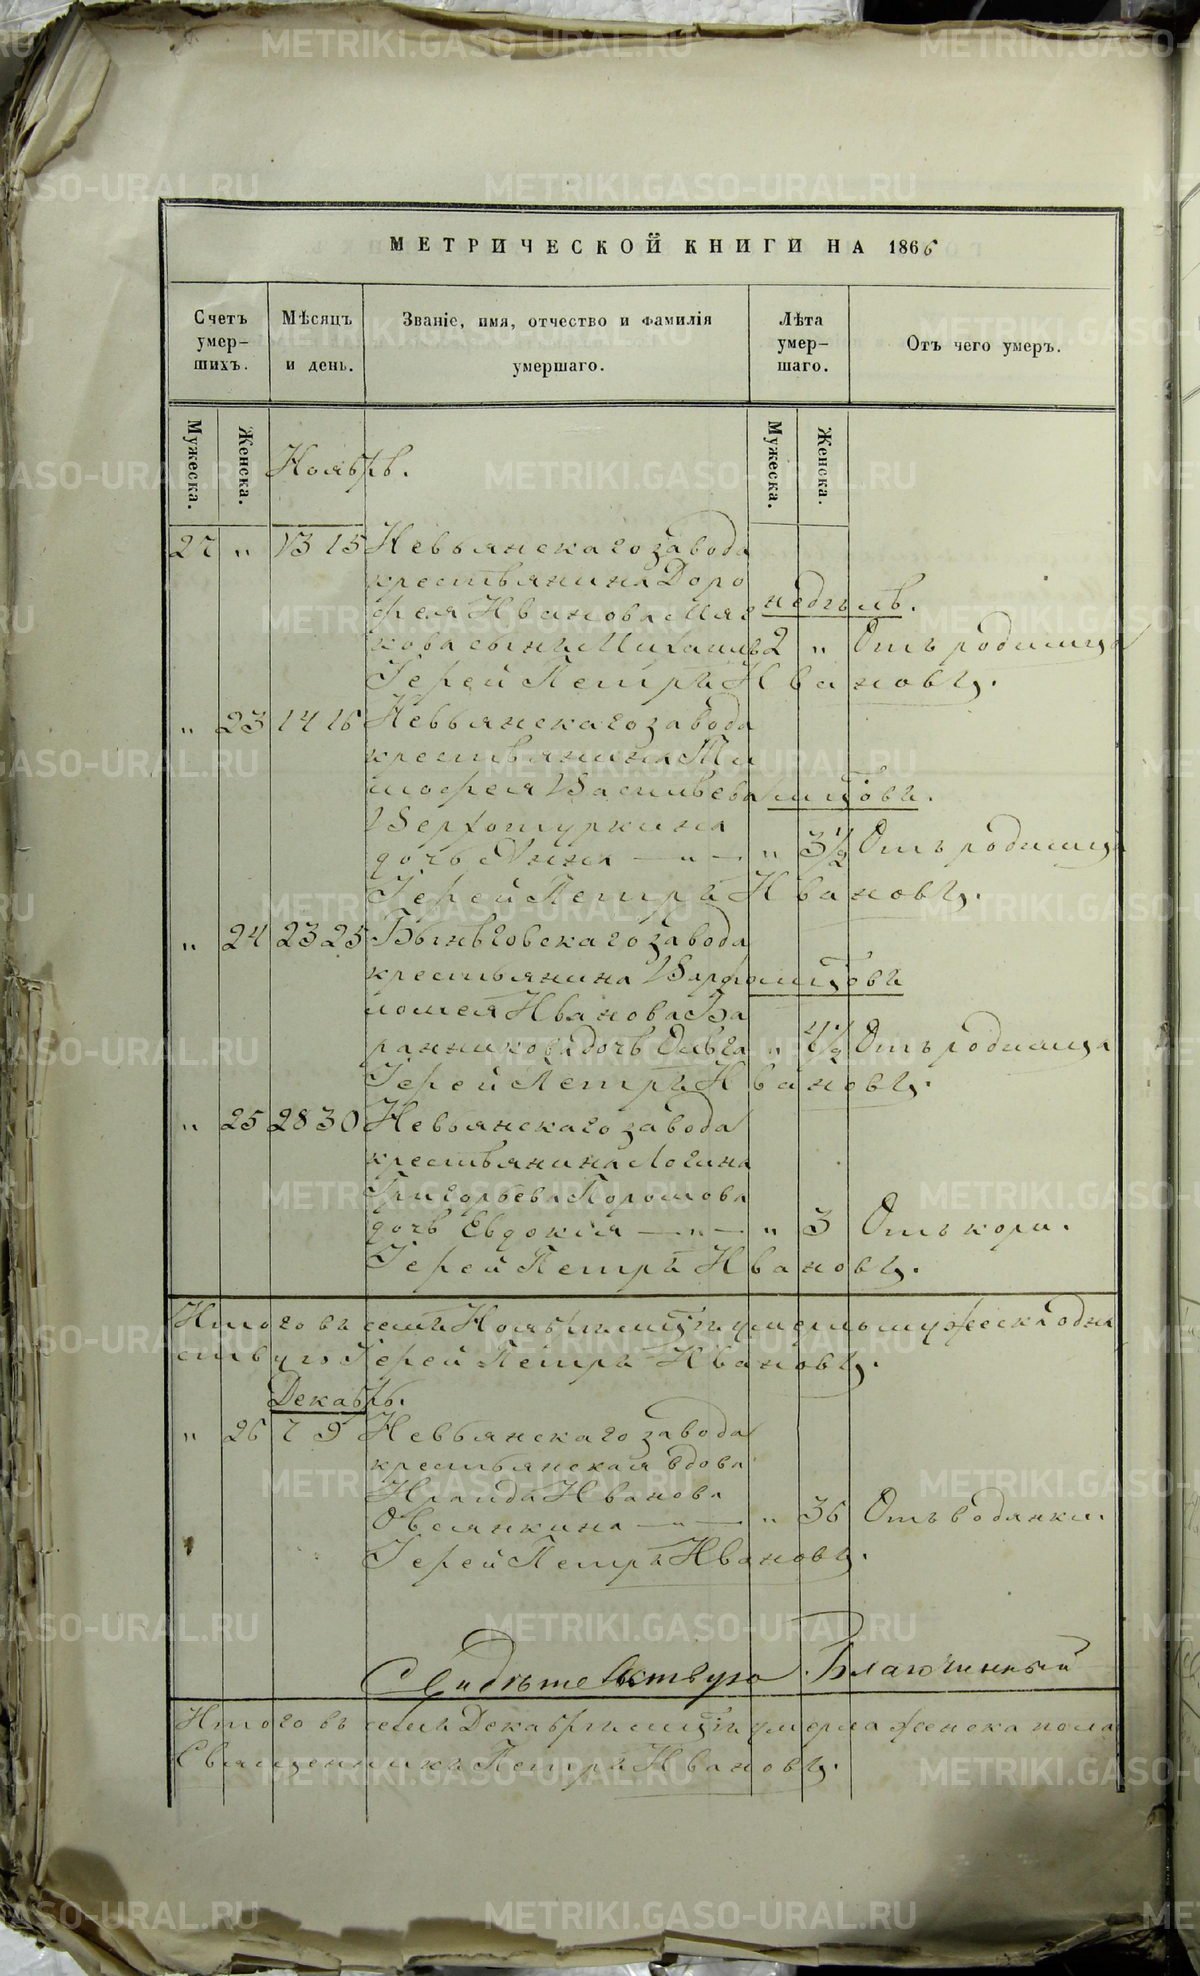 МЕТРИЧЕСКОЙ КНИГИ НА 1866
Счетъ умер- шихъ.
Мѣсяцъ и день.
Званіе, имя, отчество и фамилія умершаго.
Лѣта умер- шаго.
Отъ чего умеръ.
Мужеска.
Женска.
Мужеска.
Женска.
Ноябрь.
27 " 13 15 Невьянскаго завода
крестьянина Доро
фея Иванова Мяг недѣль.
кова сынъ Михаилъ 2 " Отъ родимца
Іерей Петръ Ивановъ.
" 23 14 16 Невьянскаго завода
крестьянина Ти
мофея Васильева
Верхотуркина
дочь Анна — " — " 3 1/2 Отъ родимца
Іерей Петръ Ивановъ.
" 24 23 25 Быньговскаго завода
крестьянина Варфо
ломея Иванова Ба
ранникова дочь Ольга " 4 1/2 Отъ родимца
Іерей Петръ Ивановъ.
" 25 28 30 Невьянскаго завода
крестьянина Логина
Григорьева Порошова
дочь Евдокія — " — " 3 Отъ кори.
Іерей Петръ Ивановъ.
Итого въ семъ Ноябрѣ умерло мужеска одна
Іерей Петръ Ивановъ.
Декабрь.
" 26 7 9 Невьянскаго завода
крестьянская вдова
Ираида Иванова
Овсянкина — " — " 36 Отъ водянки.
Іерей Петръ Ивановъ.
Свидѣтельствую Благочинный
Итого въ семъ Декабрѣ умерла женска пола
Священникъ Петръ Ивановъ.
METRIKI.GASO-URAL.RU